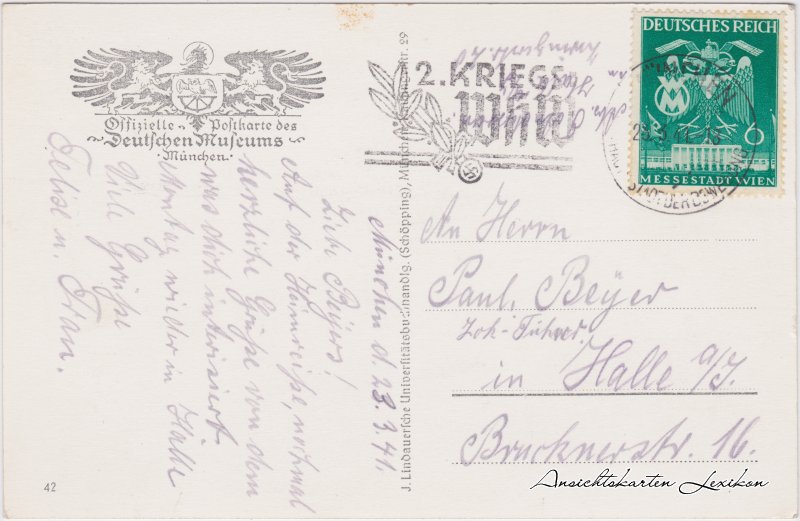 Offizielle Postkarte des
Deutschen Museums
München.
2. KRIEGS
WHW
DEUTSCHES REICH
WM
6
MESSESTADT WIEN
23.3.41
STADT DER BEWEGUNG
München d. 23.3.41
Liebe Beÿers!
Auf der Heimreise, nochmal
herzliche Grüße von dem
was dich interissiert
Montag wieder in Halle
Viele Grüße
Felix u. Frau.
J. Lindauersche Universitätsbuchhandlg. (Schöpping), München, Kaufingerstr. 29
An Herrn
Paul Beÿer
Lok-Führer
in Halle a/S.
Brucknerstr. 16.
42
Ansichtskarten Lexikon